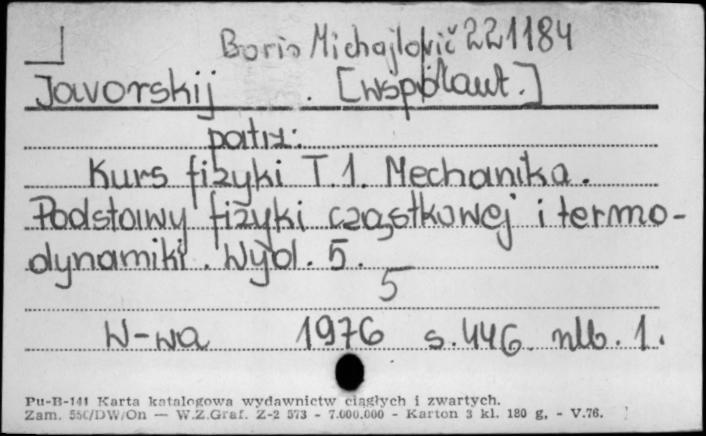 Boris Michajlovič 221184
Javorskij . [współaut.]
patrz:
Kurs fizyki T.1. Mechanika.
Podstawy fizyki cząstkowej i termo-
dynamiki. Wyd. 5.
5
W-wa 1976 s.446 nlb. 1.
Pu-B-141 Karta katalogowa wydawnictw ciągłych i zwartych.
Zam. 550/DW/On — W.Z.Graf. Z-2 573 - 7.000.000 - Karton 3 kl. 180 g. - V.76.